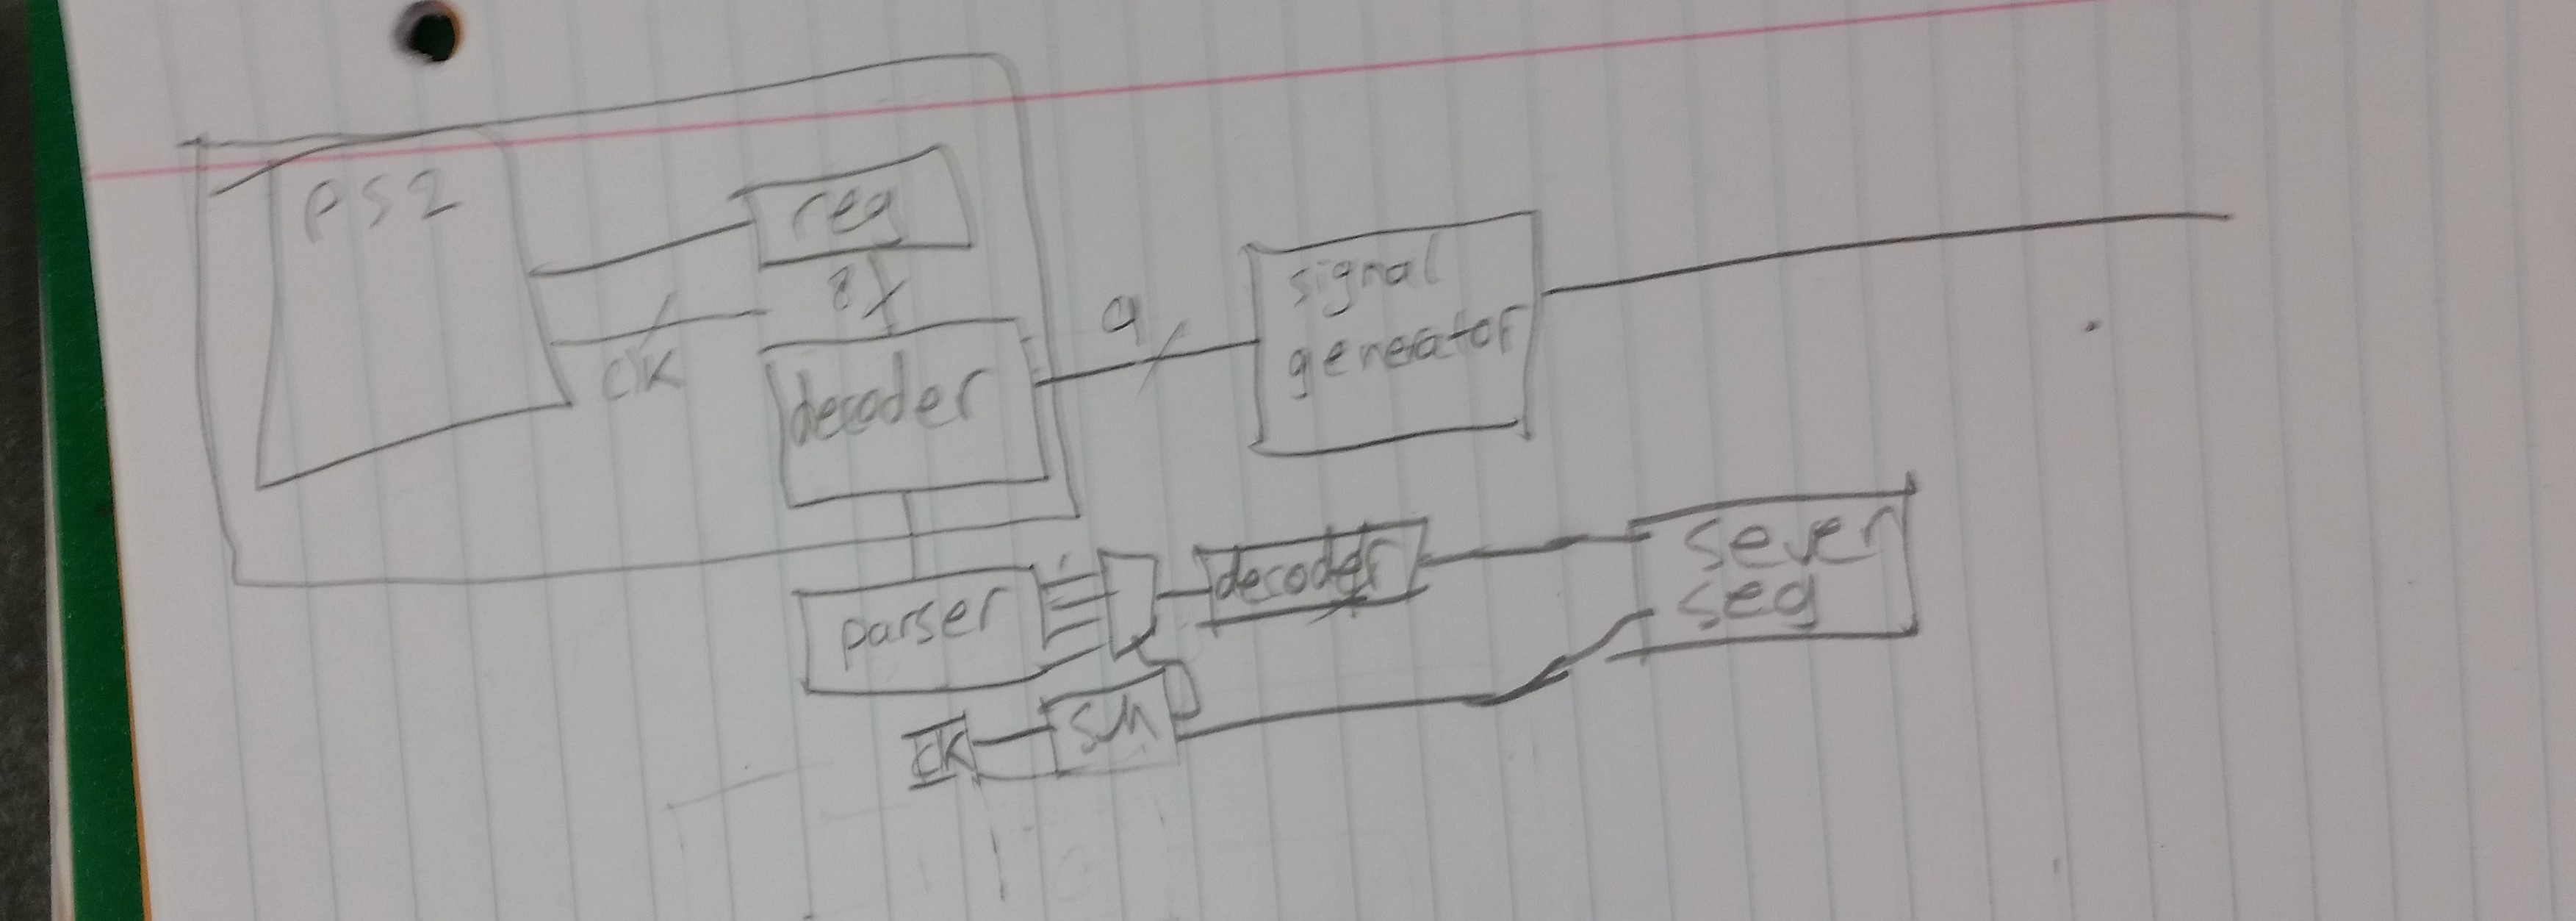 PS2
reg
8
clk
decoder
9
signal
generator
parser
decoder
seven
seg
clk
SM